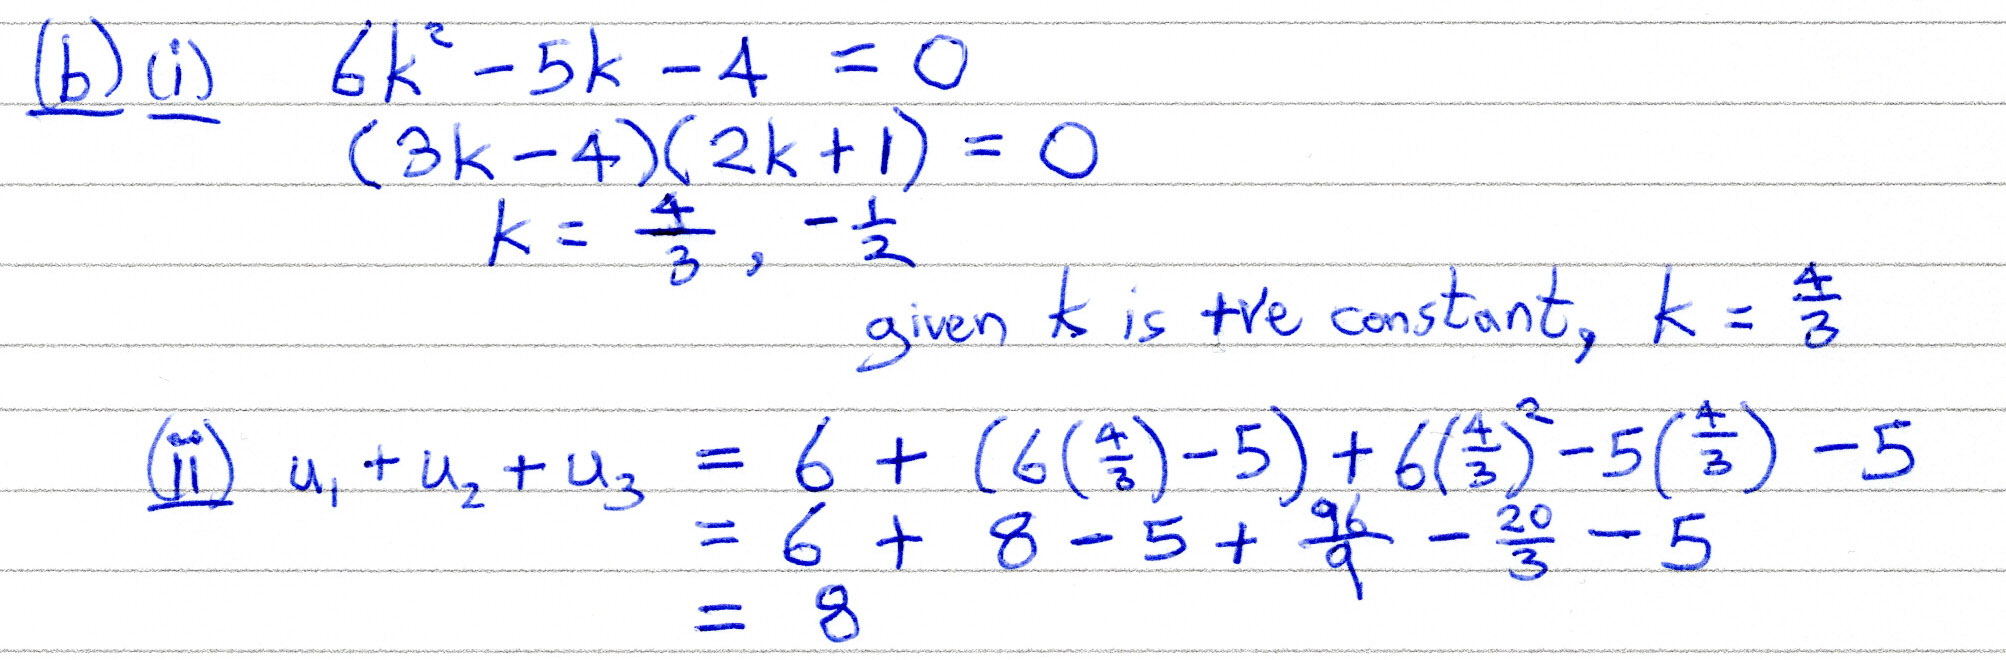 (b) (i) 6k² - 5k - 4 = 0
(3k - 4)(2k + 1) = 0
k = 4/3, -1/2
given k is +ve constant, k = 4/3
(ii) u₁ + u₂ + u₃ = 6 + (6(4/3) - 5) + 6(4/3)² - 5(4/3) - 5
= 6 + 8 - 5 + 96/9 - 20/3 - 5
= 8